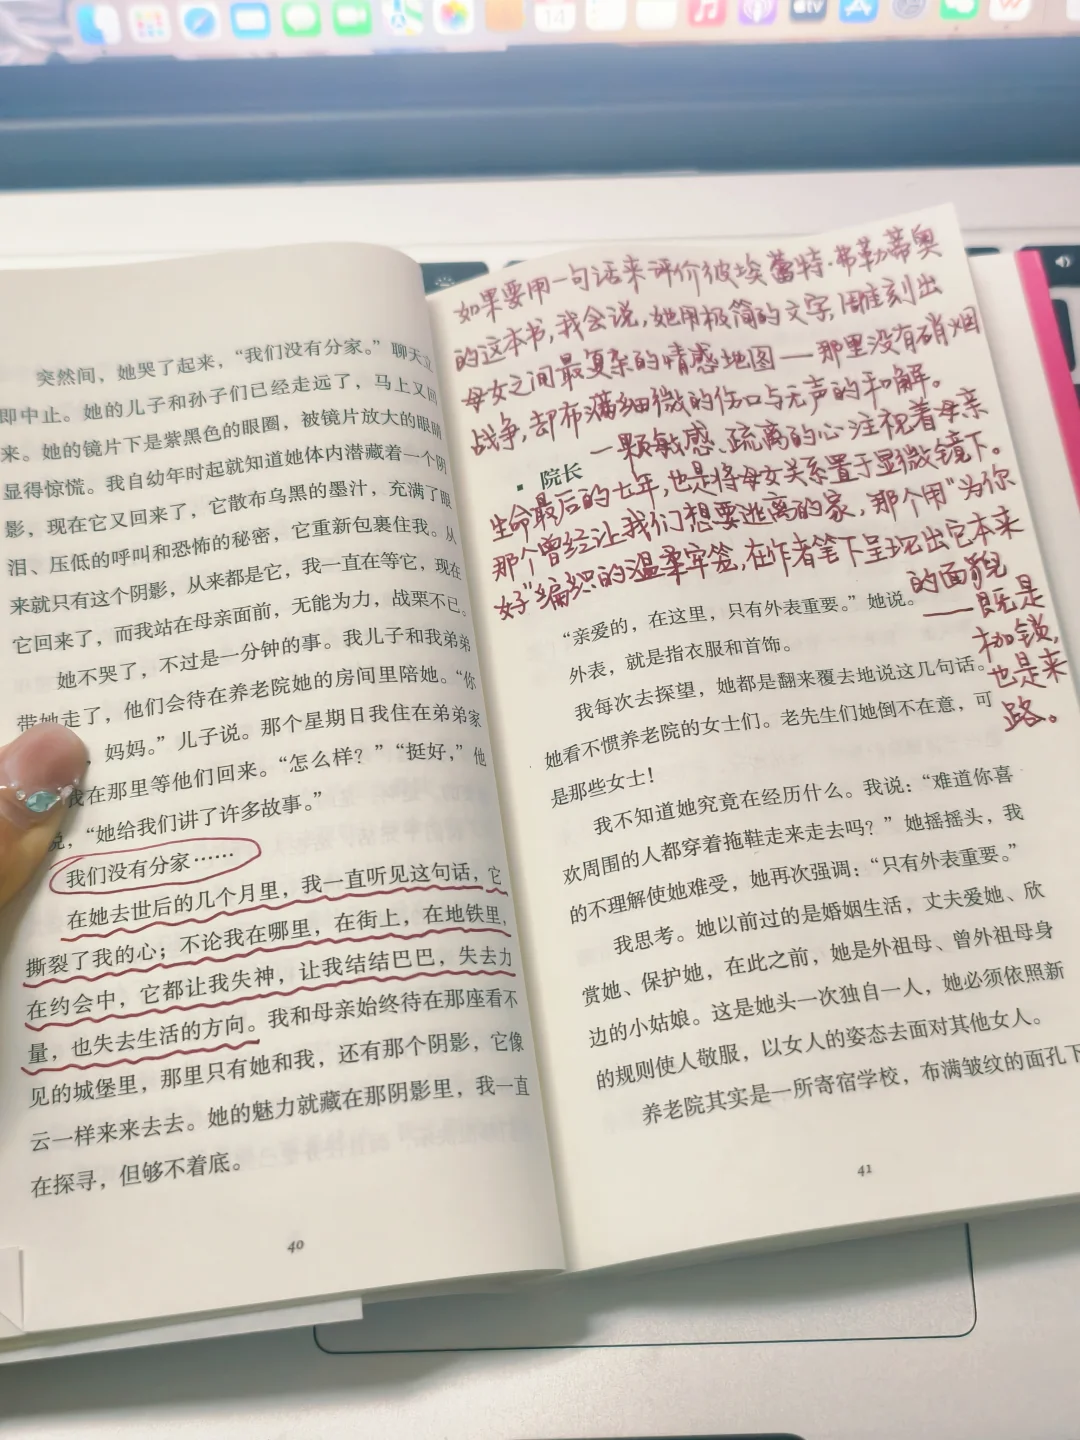 突然间，她哭了起来，“我们没有分家。”聊天立
即中止。她的儿子和孙子们已经走远了，马上又回
来。她的镜片下是紫黑色的眼圈，被镜片放大的眼睛
显得惊慌。我自幼年时起就知道她体内潜藏着一个阴
影，现在它又回来了，它散布乌黑的墨汁，充满了眼
泪、压低的呼叫和恐怖的秘密，它重新包裹住我。从
来就只有这个阴影，从来都是它，我一直在等它，现在
它回来了，而我站在母亲面前，无能为力，战栗不已。
她不哭了，不过是一分钟的事。我儿子和我弟弟
带她走了，他们会待在养老院她的房间里陪她。“你
，妈妈。”儿子说。那个星期日我住在弟弟家
我在那里等他们回来。“怎么样？”“挺好，”他
说，“她给我们讲了许多故事。”
我们没有分家……
在她去世后的几个月里，我一直听见这句话，它
撕裂了我的心；不论我在哪里，在街上，在地铁里，
在约会中，它都让我失神，让我结结巴巴，失去力
量，也失去生活的方向。我和母亲始终待在那座看不
见的城堡里，那里只有她和我，还有那个阴影，它像
云一样来来去去。她的魅力就藏在那阴影里，我一直
在探寻，但够不着底。
40
如果要用一句话来评价彼埃蕾特·弗勒蒂奥
的这本书，我会说，她用极简的文字，雕刻出
母女之间最复杂的情感地图——那里没有硝烟
战争，却布满细微的伤口与无声的和解。
一颗敏感、疏离的心注视着母亲
· 院长
生命最后的七年，也是将母女关系置于显微镜下。
那个曾经让我们想要逃离的家，那个用“为你
好”编织的温柔牢笼，在作者笔下呈现出它本来
的面貌
——既是
枷锁，
也是来
路。
“亲爱的，在这里，只有外表重要。”她说。
外表，就是指衣服和首饰。
我每次去探望，她都是翻来覆去地说这几句话。
她看不惯养老院的女士们。老先生们她倒不在意，可
是那些女士！
我不知道她究竟在经历什么。我说：“难道你喜
欢周围的人都穿着拖鞋走来走去吗？”她摇摇头，我
的不理解使她难受，她再次强调：“只有外表重要。”
我思考。她以前过的是婚姻生活，丈夫爱她、欣
赏她、保护她，在此之前，她是外祖母、曾外祖母身
边的小姑娘。这是她头一次独自一人，她必须依照新
的规则使人敬服，以女人的姿态去面对其他女人。
养老院其实是一所寄宿学校，布满皱纹的面孔下
41